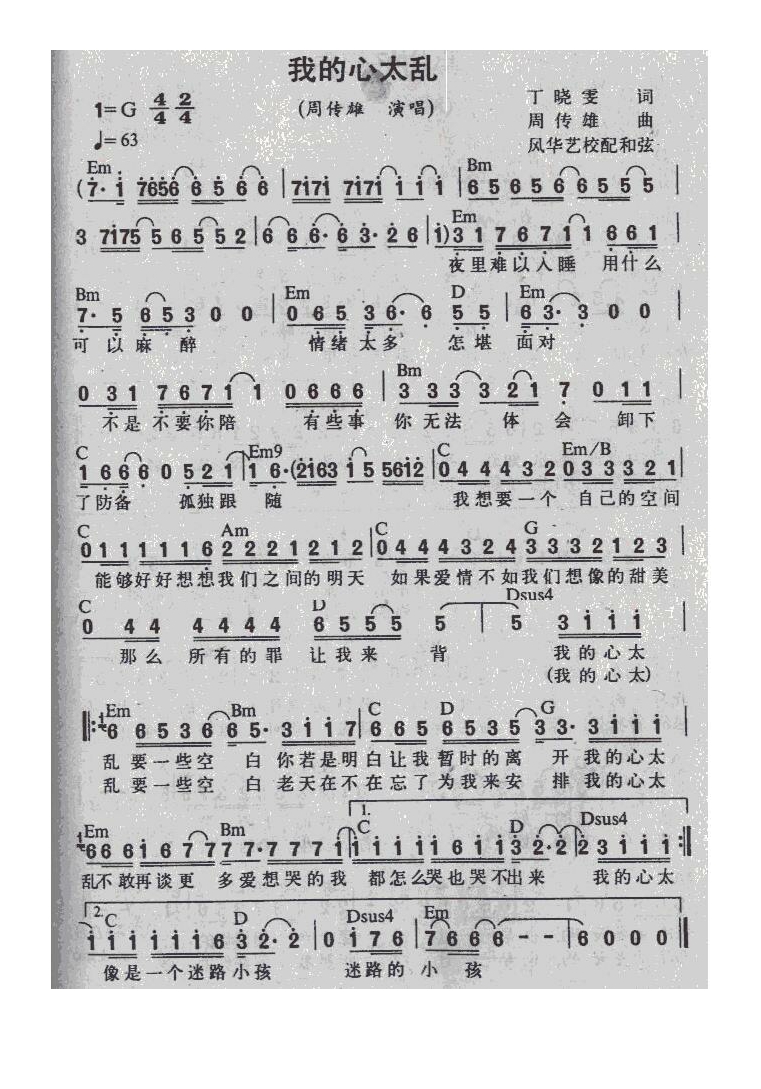 我的心太乱
1=G 4/4 2/4 (周传雄 演唱) 丁晓雯 词
♩=63 周传雄 曲
风华艺校配和弦
Em Bm
(7· i 7656 6 5 6 6 | 7171 7171 i i i | 6 5 6 5 6 6 5 5 5 |
Em
3 7175 5 6 5 5 2 | 6 6 6· 6 3· 2 6 | i) 3 1 7 6 7 1 1 6 6 1 |
夜里难以入睡 用什么
Bm Em D Em
7· 5 6 5 3 0 0 | 0 6 5 3 6· 6 5 5 | 6 3· 3 0 0 |
可以麻醉 情绪太多 怎堪 面对
Bm
0 3 1 7 6 7 1 1 0 6 6 6 | 3 3 3 3 2 1 7 0 1 1 |
不是不要你陪 有些事 你无法 体 会 卸下
C Em9 C Em/B
1 6 6 6 0 5 2 1 | 1 6· (2163 i 5 5612 | 0 4 4 4 3 2 0 3 3 3 2 1 |
了防备 孤独跟 随 我想要一个 自己的空间
C Am C G
0 1 1 1 1 1 6 2 2 2 1 2 1 2 | 0 4 4 4 3 2 4 3 3 3 2 1 2 3 |
能够好好想想我们之间的明天 如果爱情不如我们想像的甜美
C D Dsus4
0 4 4 4 4 4 4 6 5 5 5 5 | 5 3 i i i |
那么 所有的罪 让我来 背 我的心太
(我的心太)
Em Bm C D G
‖: 6 6 5 3 6 6 5· 3 i i 7 | 6 6 5 6 5 3 5 3 3· 3 i i i |
乱 要一些空 白 你若是明白让我暂时的离 开 我的心太
乱 要一些空 白 老天在不在忘了为我来安 排 我的心太
1.
Em Bm C D Dsus4
6 6 6 i 6 7 7 7 7· 7 7 7 i | i i i i i 6 i i 3 2· 2 | 2 3 i i i :‖
乱不敢再谈更 多爱想哭的我 都怎么哭也哭不出来 我的心太
2.
C D Dsus4 Em
i i i i i i 6 3 2· 2 | 0 i 7 6 | 7 6 6 6 - - | 6 0 0 0 ‖
像是一个迷路小孩 迷路的 小 孩